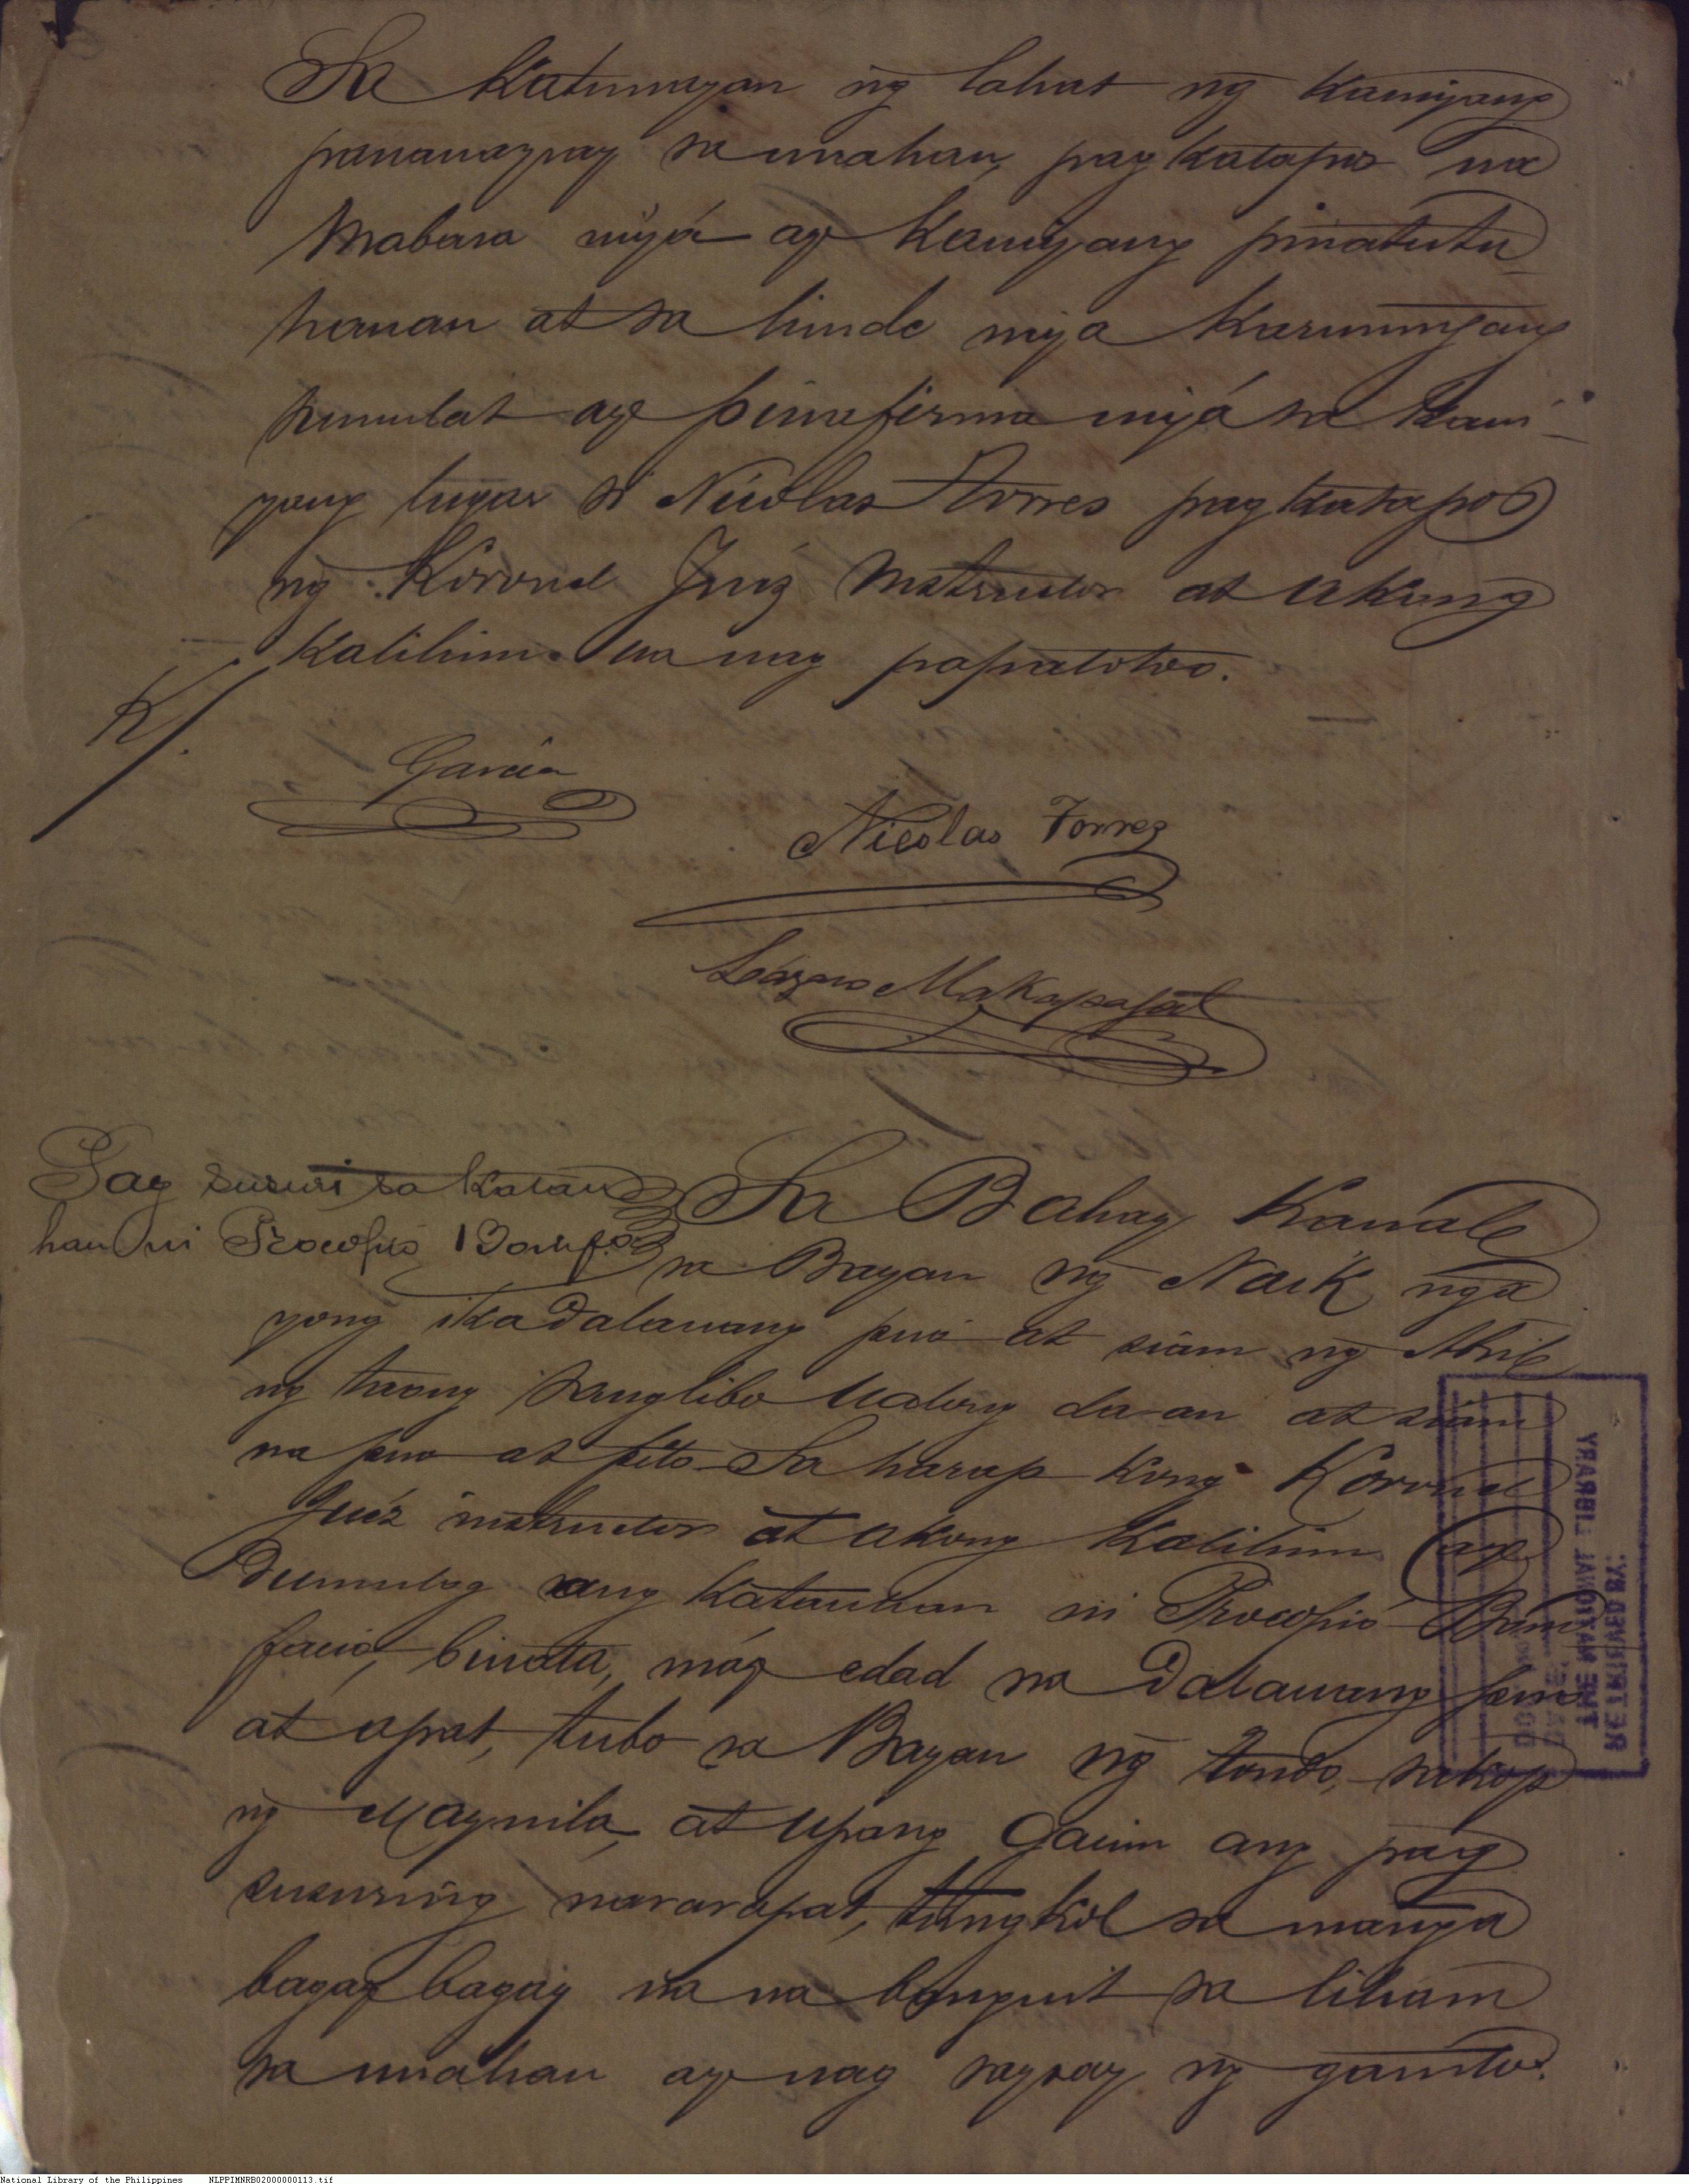 Sa katunayan ng̃ lahat ng̃ kaniyang
pananaysay sa unahan, pagkatapos na
mabasa niyá ay kaniyang pinatutu-
hanan at sa hinde niya karunungang
sumulat ay pinafirma niyá sa kani-
yang lugar si Nicolas Torres pagkatapos
ng̃ Koronel Juez instructor at akong
kalihim na nag papatotoo.
K/.
Garcia
Nicolas Torres
Lázaro Makapagal
Pag susuri sa katau
han ni Procopio Bonifo
Sa Bahay Kanale
sa Bayan ng̃ Naik ng̃a
yong ika dalawang puo at siam ng̃ Abril
ng̃ taong sanglibo walong da-an at siam
na puo at pito Sa harap kong Koronel
Juez instructor at akong kalihim ay
Dumulog ang katauhan ni Procopio Boni
facio, binata, máy edad na dalawang puo
at apat, tubo sa Bayan ng̃ Tondo, sakop
ng̃ Maynila, at upang gawin ang pag
susuring nararapat, tungkol sa mang̃a
bagay bagay na na bangguit sa liham
sa unahan ay nag saysay ng̃ ganito.
RETRIEVED BY:
THE NATIONAL LIBRARY
National Library of the Philippines NLPPIMNRB02000000113.tif